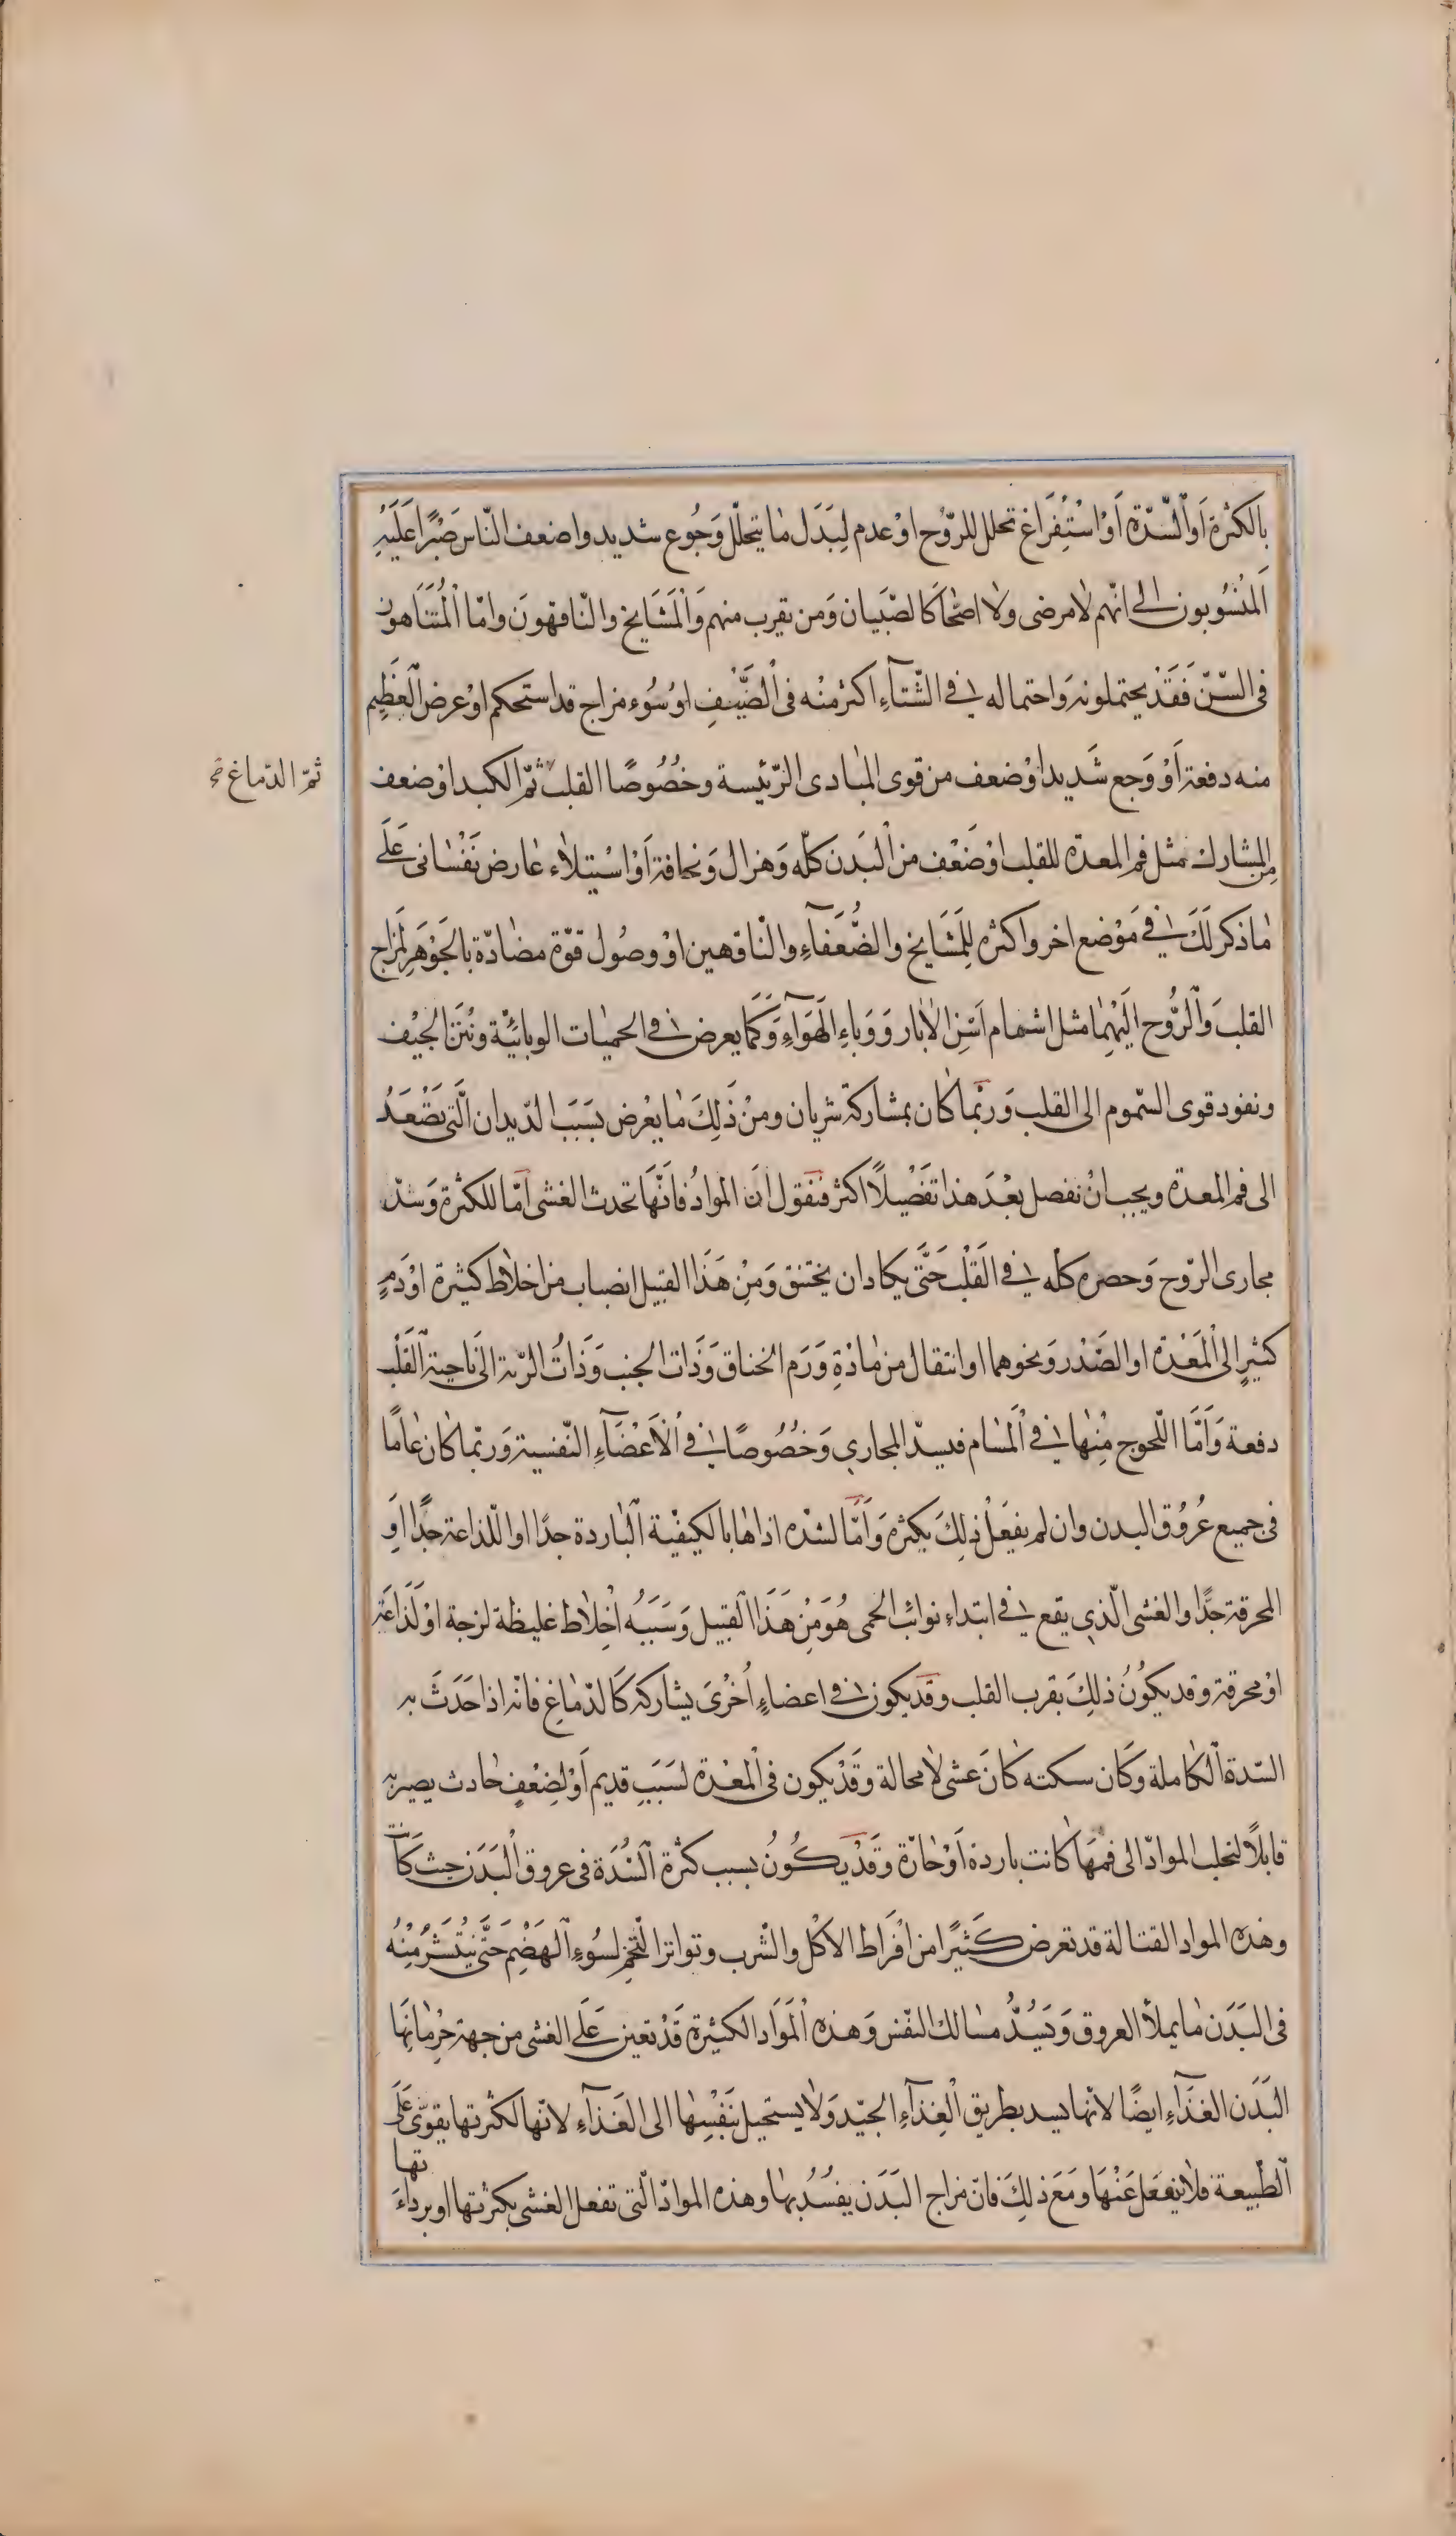 بالكثرة اَواْلسّدّة اَوْاسْتِفْرَاغ تحلل للرّوُح اوْعدم لِبَدَل مٰا يتحلّل وَجُوع شديد واضعف النّاس صَبْرًا عَلَيْهِ
اَلمَنْسُوُبون الى انّهم لامرضى ولا اصحّا كالصّبَيان وَمن يقرب منهم وَاْلمَشَايخ والنّاقهونَ وامّا اْلمُتَنَاهون
فى السّنّ فَقَدْ يحتملونه وَاحتماله فى الشّتآءِ اكثر منْه فى اْلصَّيْفِ اوْسُوُء مزاج قد استحكم اوْعرض العَظِيم
منه دفعة اَوْ وَجع شَديد اوْ ضعف من قوى المبٰادى الرّئيسة وخُصُوصًا القلب ثمّ الكبد اوْ ضعف
ثمّ الدّماغ صح
مِن المشارك مثل فم المعدّة للقلب اوْضَعْف من اْلبَدن كلّه وَهزال وَنحافة اَوْاسْتيلٰاء عٰارض نَفْسٰانى عَلَى
مٰاذكر لَكَ فى مَوْضع اخر واكثره لِلِمَشَايخ والضُّعَفآءِ والنّاقهين اوْ وصُول قوّة مضٰادّة بالجَوْهَرِ لمزاج
القلب وَاْلرُّوُح الَيْهِمٰا مثل اشمام اَسَنِ الاٰبار وَوَباءِ الهَوَآءِ وَكَمَا يعرض فى الحميٰات الوبائيّة ونُتَن الجيْف
ونفود قوى السّموم الى القلب وَربّمٰا كٰان بمشاركة شريان ومنْ ذَلِكَ مٰا يعْرض بسَبَب الدّيدان الَّتى تصْعَدُ
الى فم المعدة ويجب انْ نفصل بعْدَ هذا تفْصْيلاً اكثر فنقول انَ الموادُ فانّهَا تحدث الغشى امّا للكثرة وَسَدّ
مجارى الرّوح وَحصره كلّه فى القَلْب حَتَّى يكاد ان يختنق وَمِنْ هَذَا القبيل انصباب من اخلاط كثيرة اوْدَمٍ
كثيرٍ الى اْلمَعْدة او الصَّدْر وَنحوهما او انتقال من مٰادّةِ وَرَم الخناق وَذَات الجنب وَذَاتُ الرّية الى نٰاحية اْلقَلْب
دفعة وَاَمَّا اللّحوج مِنْهٰا فى اْلمَسٰام فيسدّ المجارِي وَخُصُوصًا فى اْلاَعْضَآءِ النّفسية وَربّما كٰان عٰامًا
فى جميع عُروُق البدن وان لم يفعَلْ ذلِكَ بكثره وَاَمَّا لشدّه اذاهٰا بالكيفيّة اْلبٰاردة جدًا او اللّذاعة جدًّا اوَ
المحرقة جدًّا والغشى الّذي يقع فى ابتداءِ نوائب الحمى هُوَ مِنْ هَذَا اْلقبيل وَسَبَبُه اَخلٰاط غليظة لزجة اوْ لَذاعَة
اوْ محرقة وقد يكوُنُ ذلِكَ بقرب القلب وقَد يكون فى اعضاءٍ اُخْرَىَ يشاركه كَالدّمٰاغِ فانّه اذا حَدَثَ به
السّدة اْلكٰاملة وكَان سكته كٰانَ عشى لٰامحالة وقَدْ يكون فى اْلمعْدة لسَبَبِ قديم اَوْ لِضعْفٍ حٰادث يصير به
قابلاً لتحلب الموادّ الى فمهَا كٰانت باردة اَوْ حٰارّة وَقَدْ يكُونُ بسبب كثرة اَلسُّدَة فى عروق اْلبَدَن حيث كَآنت
وهٰذه المواد القتالة قد تعرض كَثيرًا من افْرَاط الاكْل والشْرب وتواتر التّخم لسُوُءِ اْلهَضْمِ حَتَّى يَنْتَشَرُ مِنْهُ
فى البَدَن مٰا يملأ العروق وَيَسُدُّ مسٰالك النفْس وَهذه اْلمَوَاد الكثيرة قَدْ تعين عَلَى الغشى من جهة حِرْمٰانِهَا
البَدَن الغذَآءِ ايضًا لانّها يسد بطريق اْلغِذآءِ الجيّد وَلٰا يستحيل بنَفْسِهٰا الى الغَذآءِ لانّها لكثرتها يقوّى عَلَى
اْلطّبيعة فلٰا ينفعَل عَنْهَا وَمَعَ ذلِكَ فانّ مزاج البَدَن يفسُدُ بهٰا وهذه الموادّ الّتى تفعل الغشى بكثرتها او برداءَتها